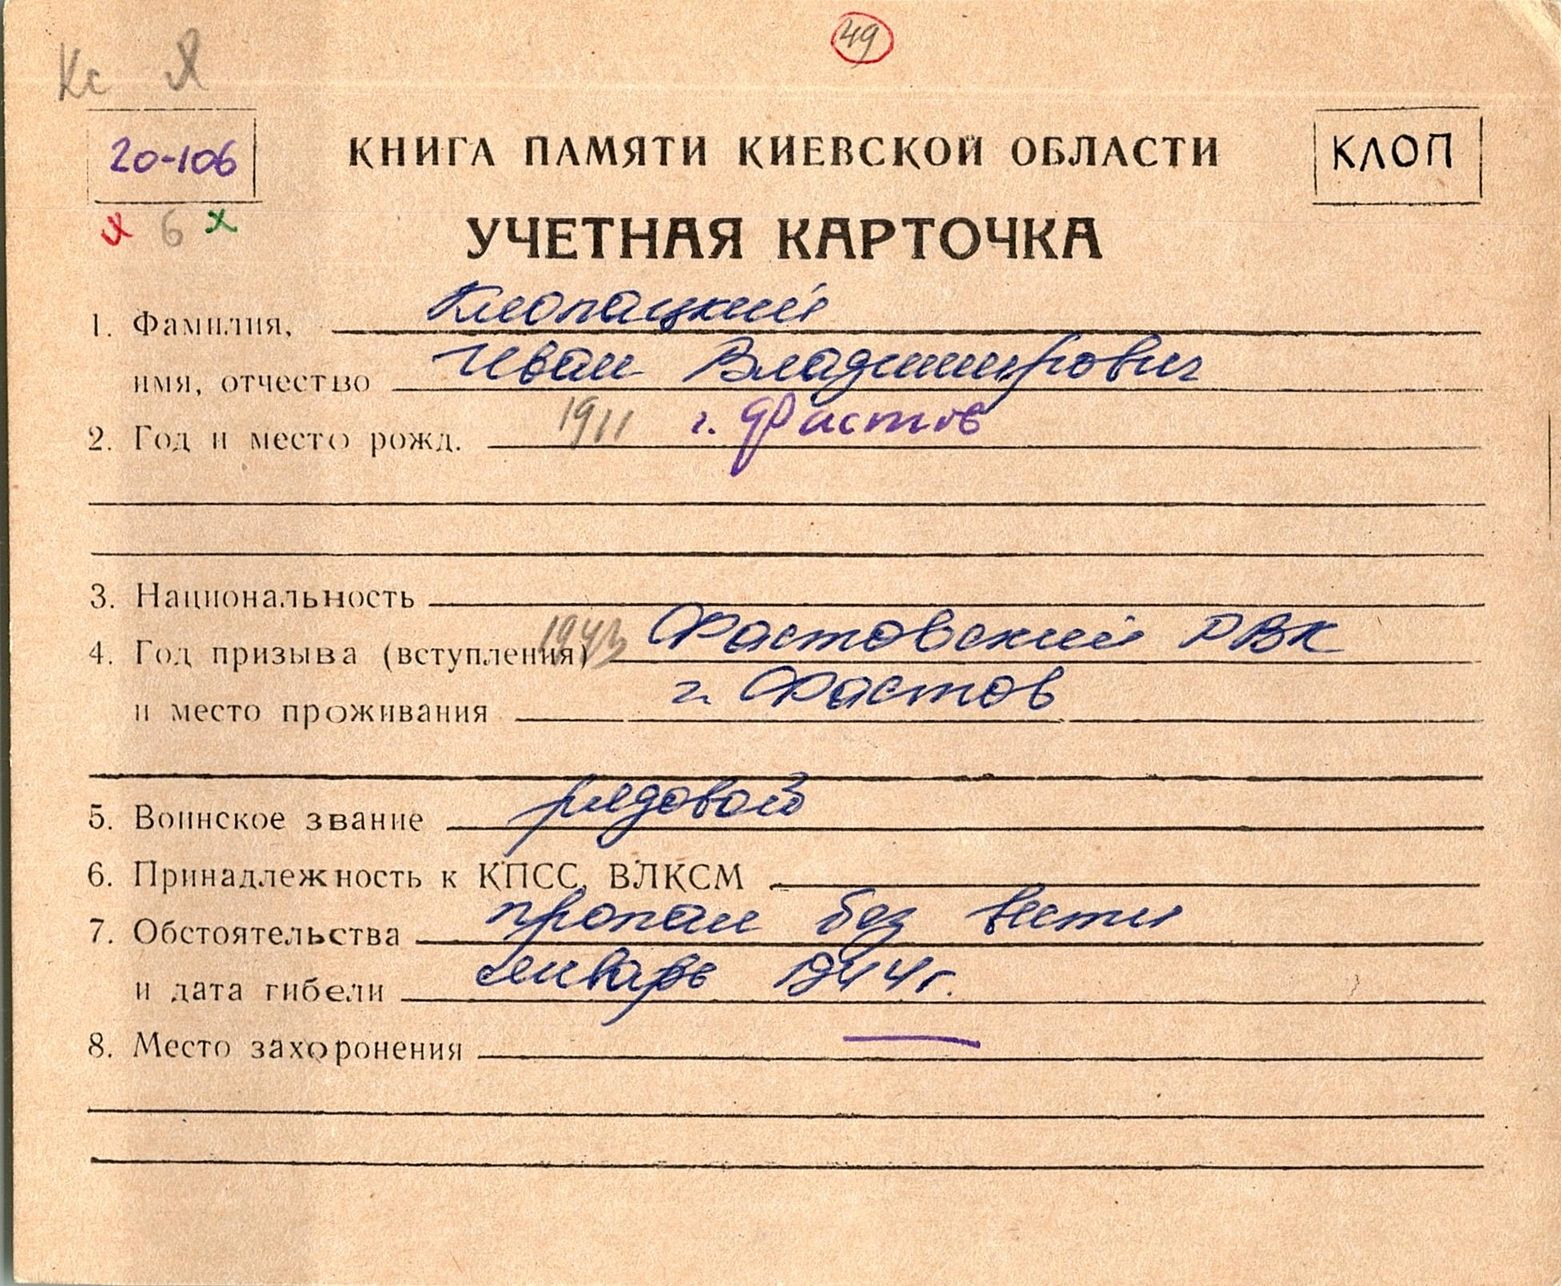 Кс Я
49
20-106
КНИГА ПАМЯТИ КИЕВСКОЙ ОБЛАСТИ
КЛОП
6 х
УЧЕТНАЯ КАРТОЧКА
1. Фамилия, Клопацкий
имя, отчество Иван Владимирович
2. Год и место рожд. 1911 г. Фастов
3. Национальность
4. Год призыва (вступления) 1943 Фастовский РВК
и место проживания г. Фастов
5. Воинское звание рядовой
6. Принадлежность к КПСС, ВЛКСМ
7. Обстоятельства пропал без вести
и дата гибели январь 1944 г.
8. Место захоронения —